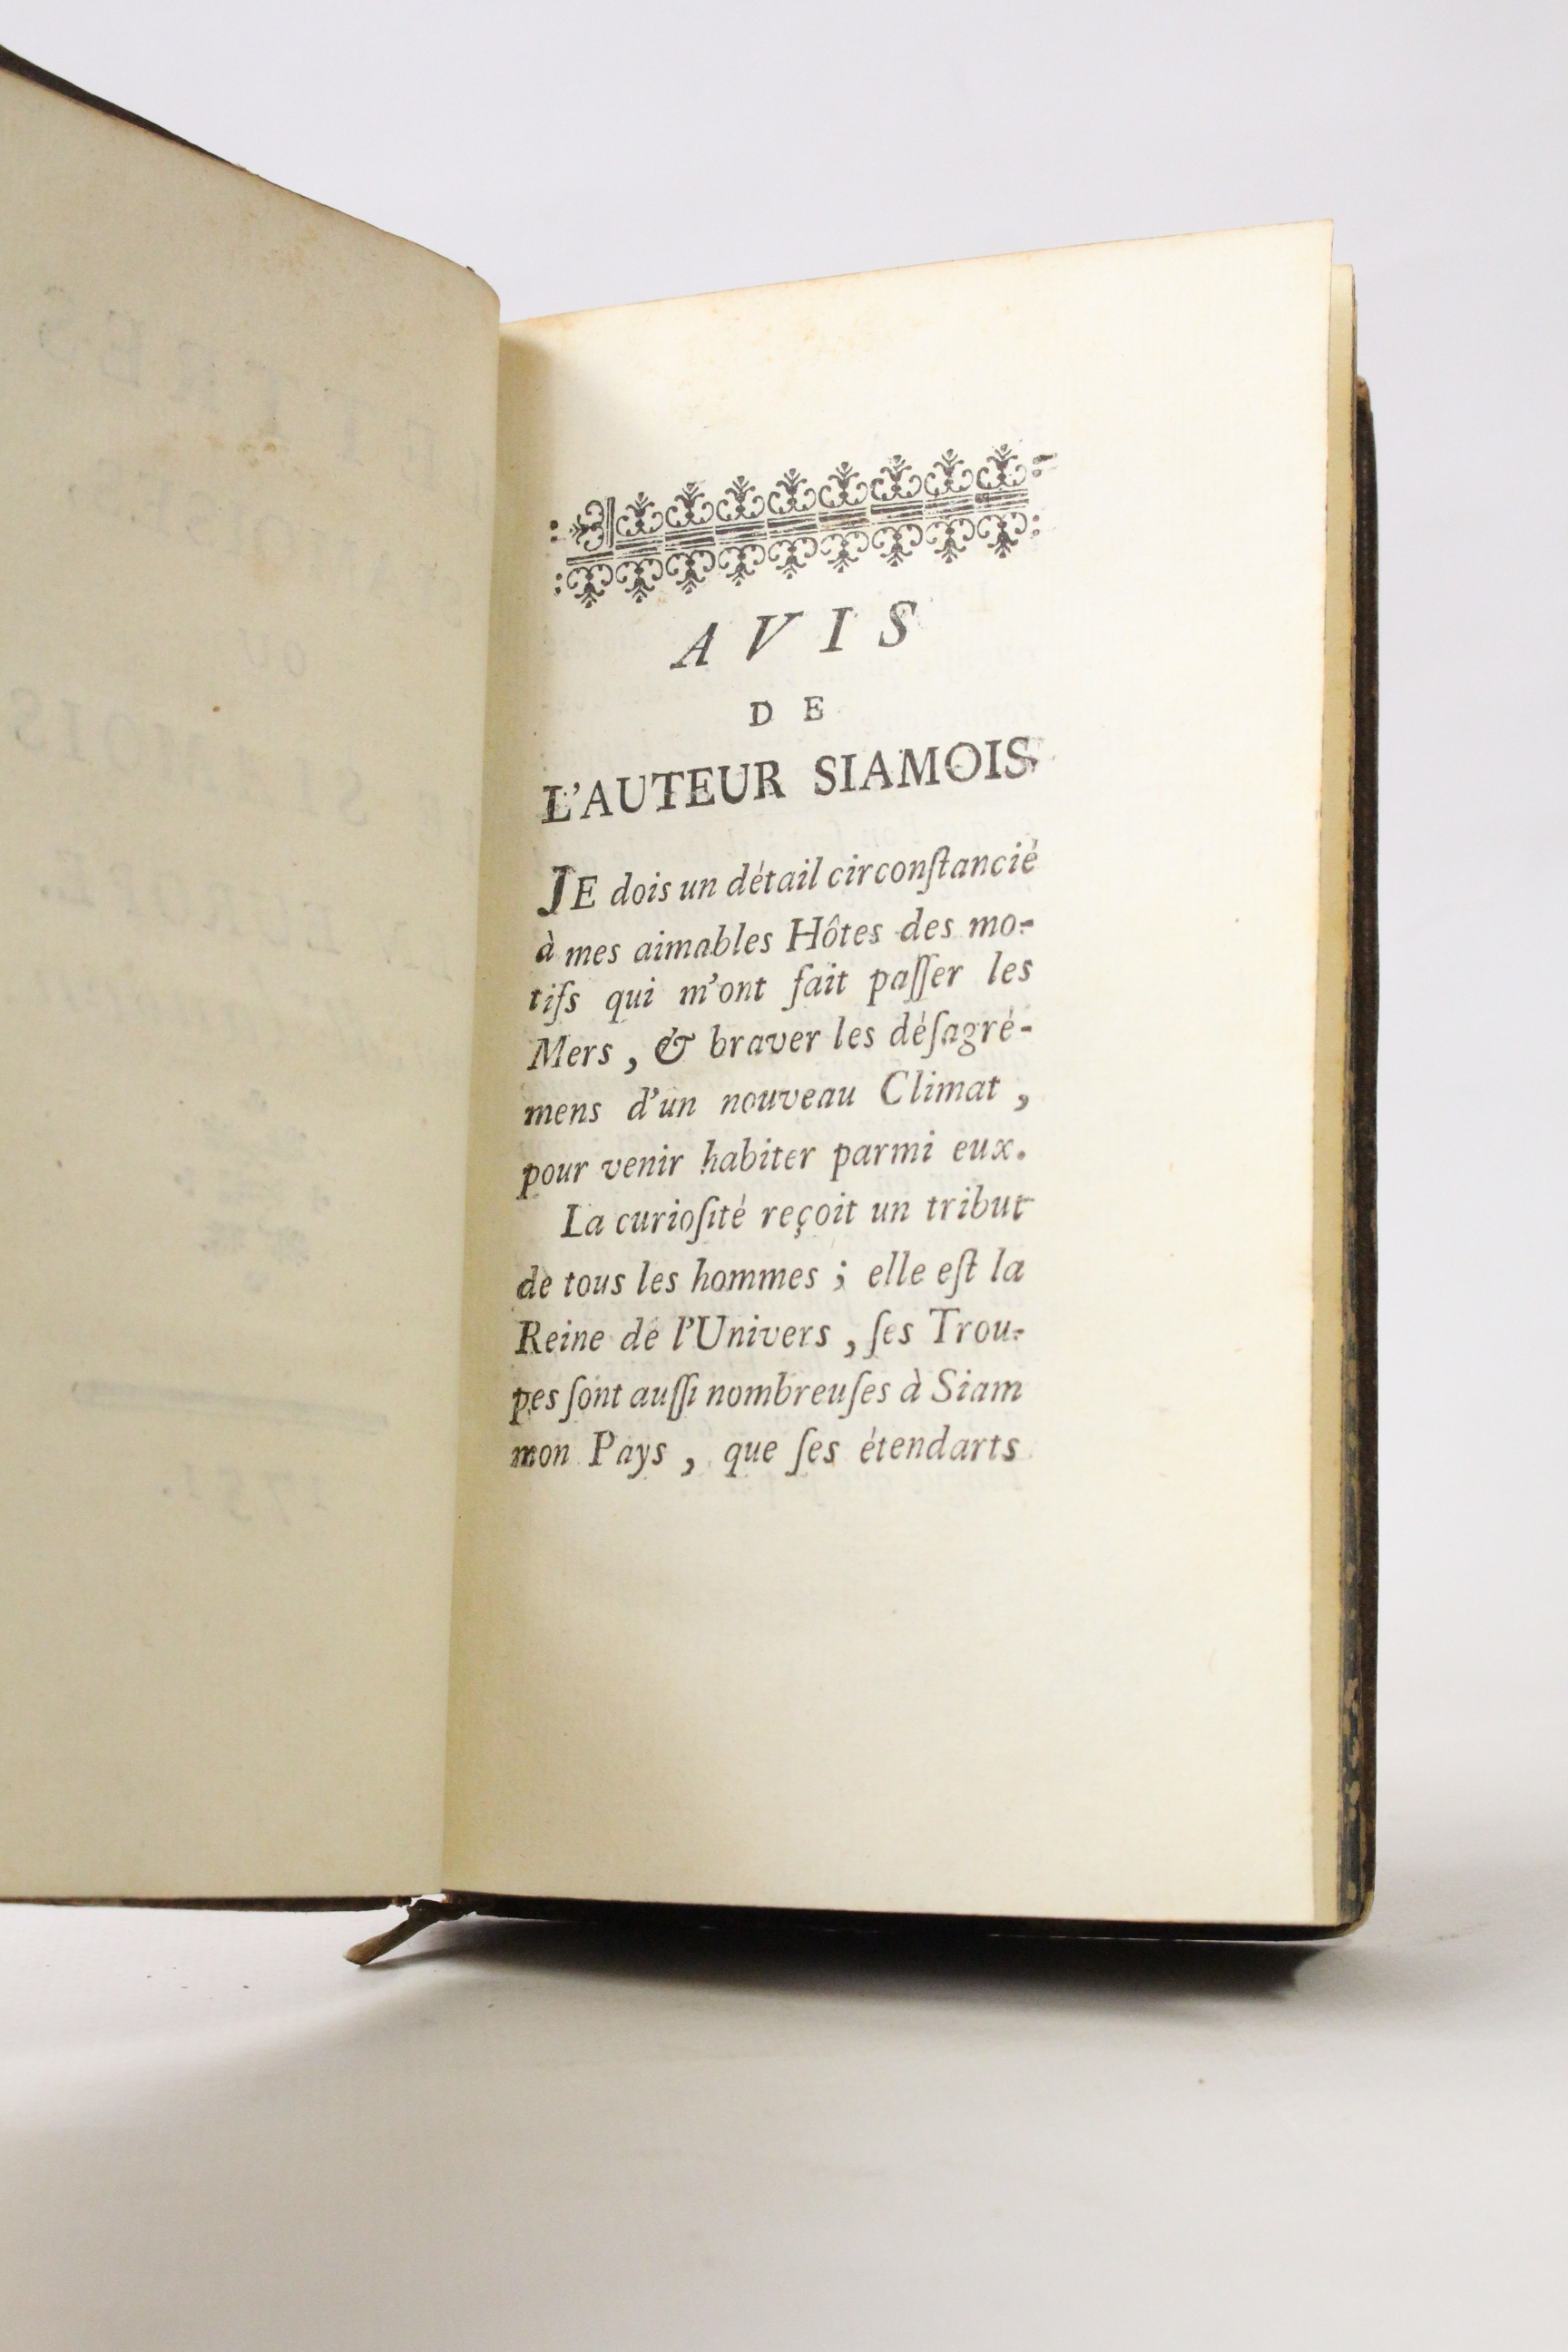 AVIS
DE
L'AUTEUR SIAMOIS.
JE dois un détail circonſtancié
à mes aimables Hôtes des mo-
tifs qui m'ont fait paſſer les
Mers, & braver les déſagré-
mens d'un nouveau Climat,
pour venir habiter parmi eux.
La curioſité reçoit un tribut
de tous les hommes ; elle eſt la
Reine de l'Univers, ſes Trou-
pes ſont auſſi nombreuſes à Siam
mon Pays, que ſes étendarts